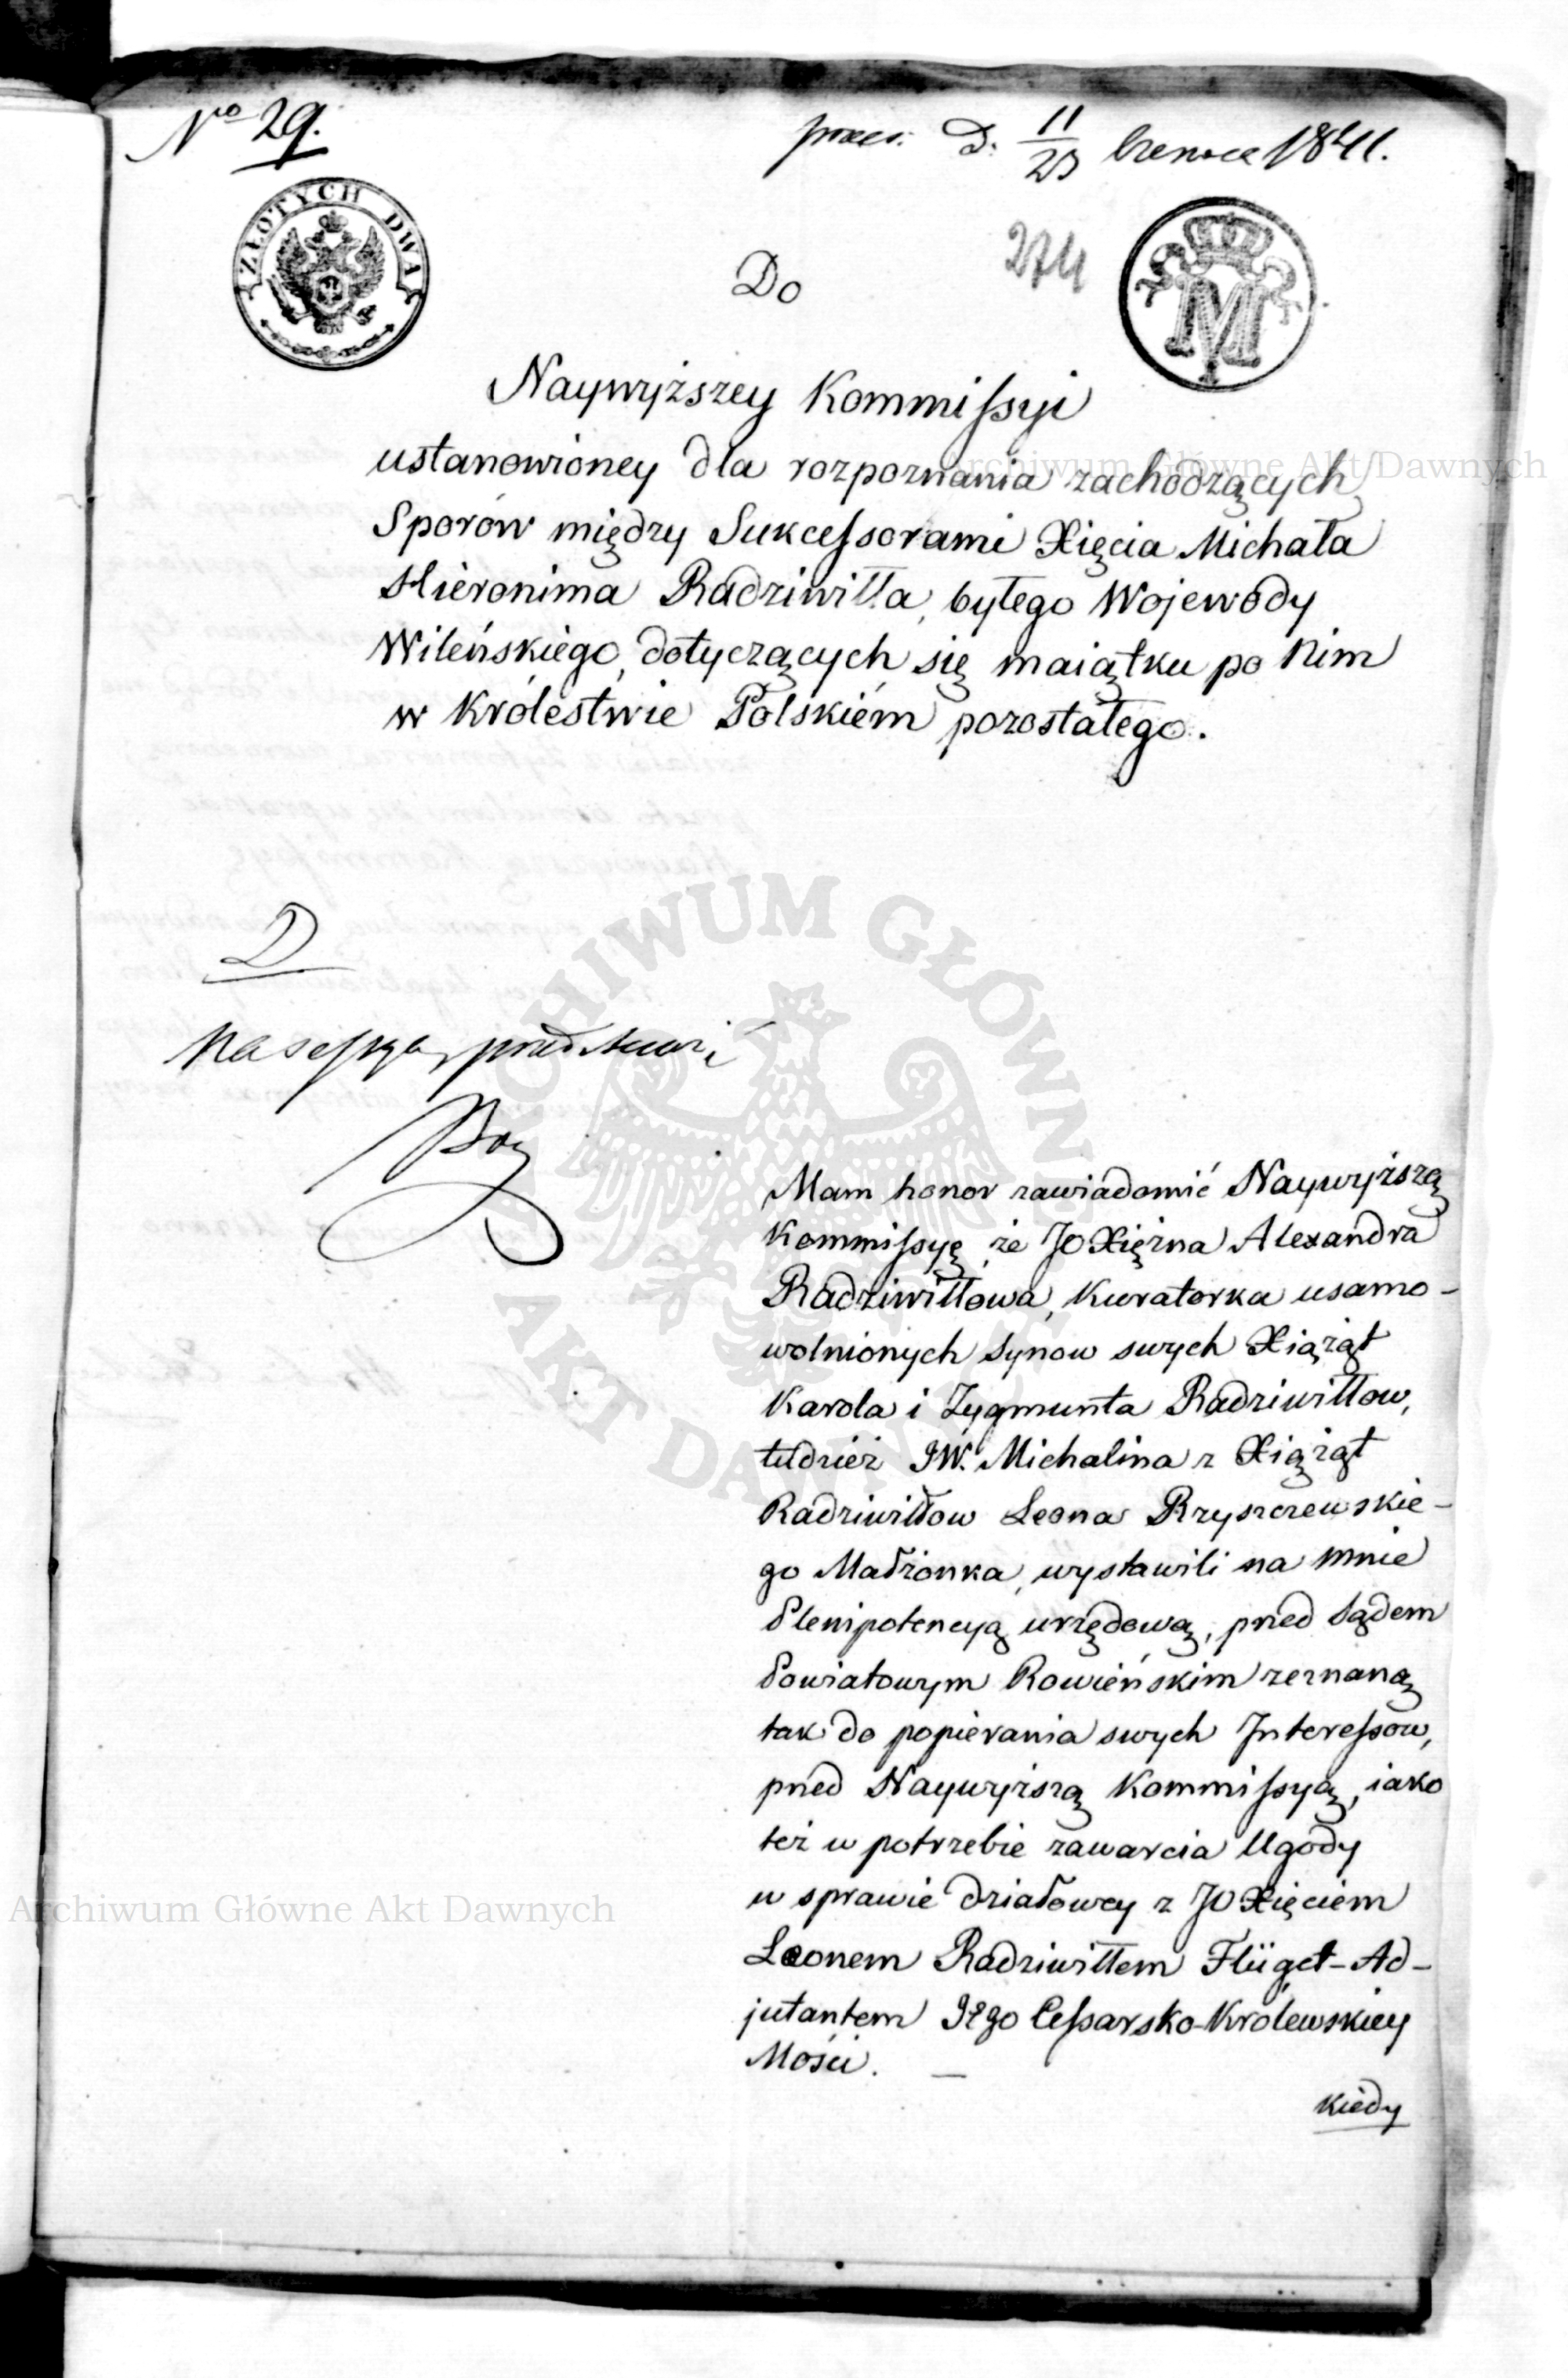 No 29.
D. 11/23 Czerwca 1841.
ZŁOTYCH DWA
Do
274
M
Naywyższey Kommissyi
ustanowioney dla rozpoznania zachodzących
Sporów między Sukcessorami Xięcia Michała
Hieronima Radziwiłła, byłego Wojewody
Wileńskiego, dotyczących się maiątku po Nim
w Królestwie Polskiém pozostałego.
Archiwum Główne Akt Dawnych
D
Na sessyą przedstawić
ARCHIWUM GŁÓWNE AKT DAWNYCH
Mam honor zawiadomić Naywyższą
Kommissyę, że JO Xiężna Alexandra
Radziwiłłowa, Kuratorka usamo-
wolnionych Synow swych Xiążąt
Karola i Zygmunta Radziwiłłow,
tudzież JW. Michalina z Xiążąt
Radziwiłłow Leona Rzyszczewskie-
go Małżonka, wystawili na mnie
Plenipotencyą urzędową, przed Sądem
Powiatowym Rowieńskim zeznaną
tak do popierania swych Interessow,
przed Naywyższą Kommissyą, iako
też w potrzebie zawarcia Ugody
w sprawie działowey z JO Xięciem
Archiwum Główne Akt Dawnych
Leonem Radziwiłłem Flügel-Ad-
jutantem Jego Cessarsko-Królewskiey
Mości. —
kiedy